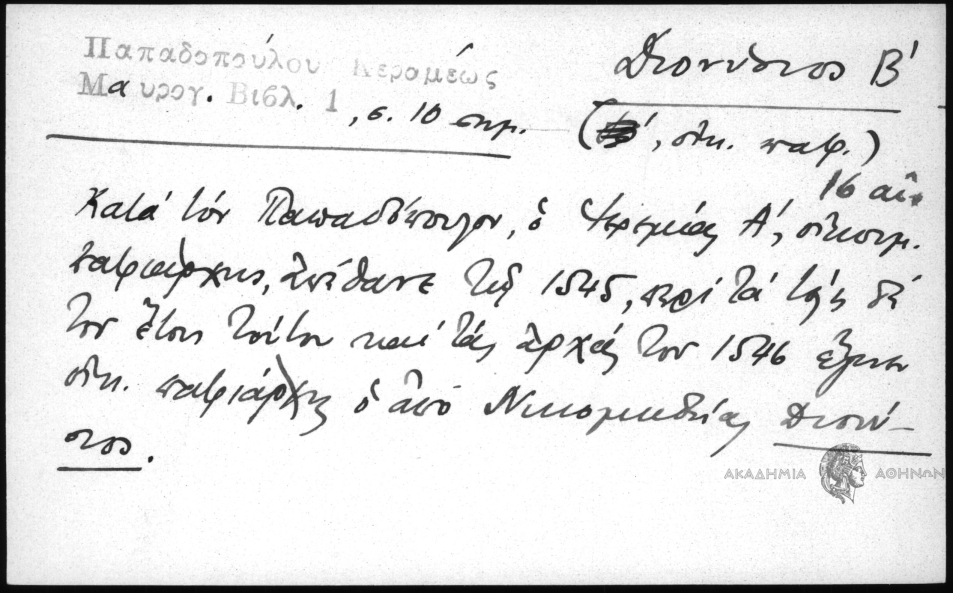 Παπαδοπούλου Κεραμέως
Μαυρογ. Βιβλ. 1, σ. 10 σημ.
Διονύσιος Β΄
(οἰκ. πατρ.)
16 αἰ.
Κατά τόν Παπαδόπουλον, ὁ Ἱερεμίας Α΄, οἰκουμ.
πατριάρχης, ἀπέθανε τῷ 1545, περί τά τέλη δέ
του ἔτους τούτου καί τάς ἀρχάς του 1546 ἐγένετο
οἰκ. πατριάρχης ὁ ἀπό Νικομηδείας Διονύ-
σιος.
ΑΚΑΔΗΜΙΑ ΑΘΗΝΩΝ